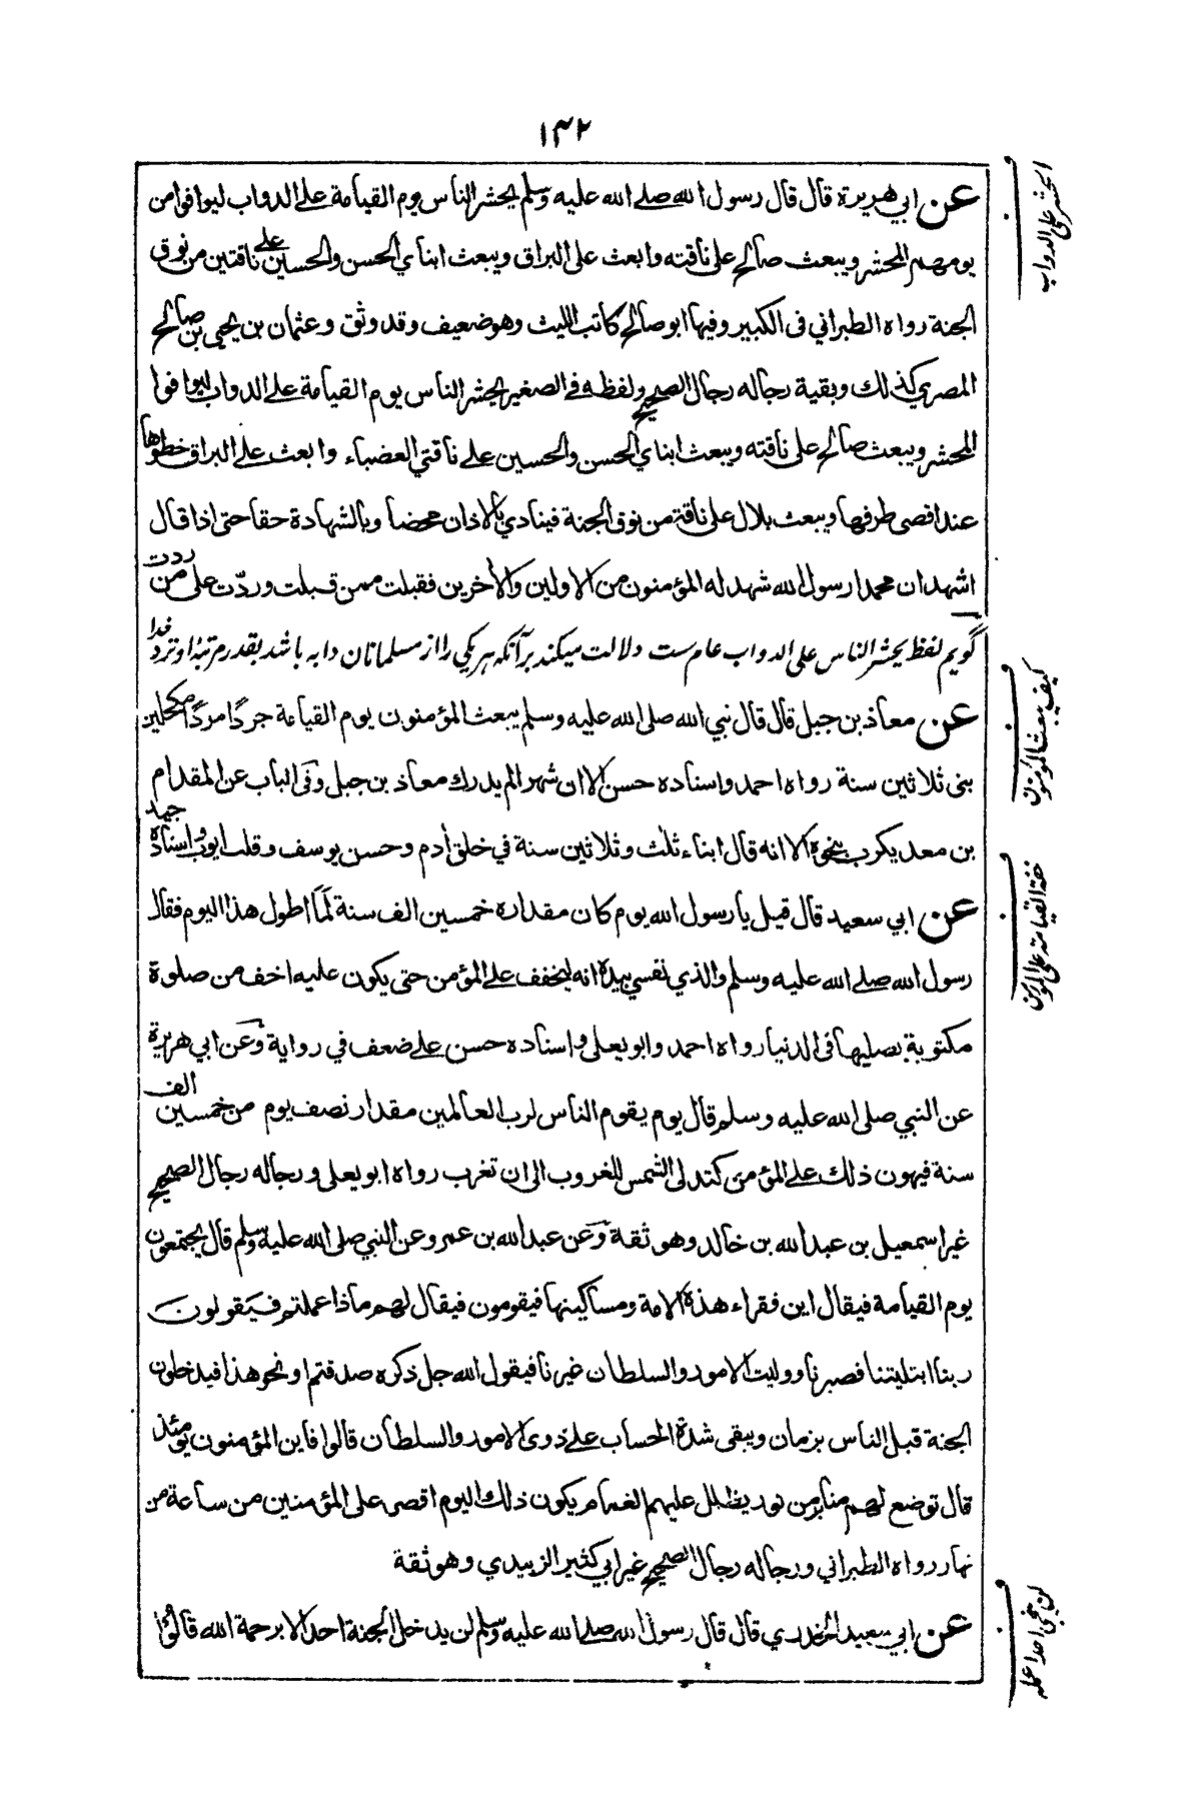 ۱۳۲
عن ابي هريرة قال قال رسول الله صلے الله عليه وسلم يحشر الناس يوم القيامة علے الدواب ليوافوا من
يومهم المحشر ويبعث صالح على ناقته وابعث على البراق ويبعث ابناي الحسن والحسين علے ناقتين من نوق
الجنة رواه الطبراني فى الكبير وفيها ابو صالح كاتب الليث وهو ضعيف وقد وثق وعثمان بن يحيى بن صالح
المصري كذلك وبقية رجاله رجال الصحيح ولفظه فے الصغير يحشر الناس يوم القيامة علے الدواب ليوافوا
المحشر ويبعث صالح على ناقته ويبعث ابناي الحسن والحسين علے ناقتي العضباء وابعث علے البراق خطوها
عند اقصى طرفها ويبعث بلال على ناقة من نوق الجنة فينادي بالاذان محضا وبالشهادة حقا حتى اذا قال
اشهد ان محمدا رسول الله شهد له المؤمنون من الاولين والأخرين فقبلت ممن قبلت وردّت على من ردت
گويم لفظ يحشر الناس على الدواب عام ست دلالت ميكند برآنكه هر يكي را از مسلمانان دابه باشد بقدر مرتبۂ او نزد خدا
عن معاذ بن جبل قال قال نبي الله صلى الله عليه وسلم يبعث المؤمنون يوم القيامة جردًا مردًا مكحلين
بنى ثلاثين سنة رواه احمد واسناده حسن الا ان شهرا لم يدرك معاذ بن جبل وفى الباب عن المقدام
بن معديكرب بنحوه الا انه قال ابناء ثلث وثلاثين سنة في خلق أدم وحسن يوسف وقلب ايوب واسناده جيد
عن ابي سعيد قال قيل يا رسول الله يوم كان مقداره خمسين الف سنة لَمَا اطول هذا اليوم فقال
رسول الله صلے الله عليه وسلم والذي نفسي بيده انه ليخفف علے المؤمن حتى يكون عليه اخف من صلوة
مكتوبة يصليها فى الدنيا رواه احمد وابو يعلى واسناده حسن علے ضعف في رواية وعن ابي هريرة
عن النبي صلى الله عليه وسلم قال يوم يقوم الناس لرب العالمين مقدار نصف يوم من خمسين الف
سنة فيهون ذلك علے المؤمن كتدلى الشمس للغروب الى ان تغرب رواه ابو يعلى ورجاله رجال الصحيح
غير اسمعيل بن عبد الله بن خالد وهو ثقة وعن عبد الله بن عمرو عن النبي صلى الله عليه وسلم قال يجتمعون
يوم القيامة فيقال اين فقراء هذه الامة ومساكينها فيقومون فيقال لهم ماذا عملتم فيقولون
ربنا ابتليتنا فصبرنا ووليت الامور والسلطان غيرنا فيقول الله جل ذكره صدقتم او نحو هذا فيدخلون
الجنة قبل الناس بزمان ويبقى شدة الحساب علے ذوى الامور والسلطان قالوا فاين المؤمنون يومئذ
قال توضع لهم منابر من نور يظلل عليهم الغمام يكون ذلك اليوم اقصر على المؤمنين من ساعة من
نهار رواه الطبراني ورجاله رجال الصحيح غير ابي كثير الزبيدي وهو ثقة
عن ابي سعيد الخدري قال قال رسول الله صلے الله عليه وسلم لن يدخل الجنة احد الا برحمة الله قالوا
الحشر على الدواب
كيف يبعث المؤمنون
خفة القيامة على المؤمن
لن ينجي احدا عمله